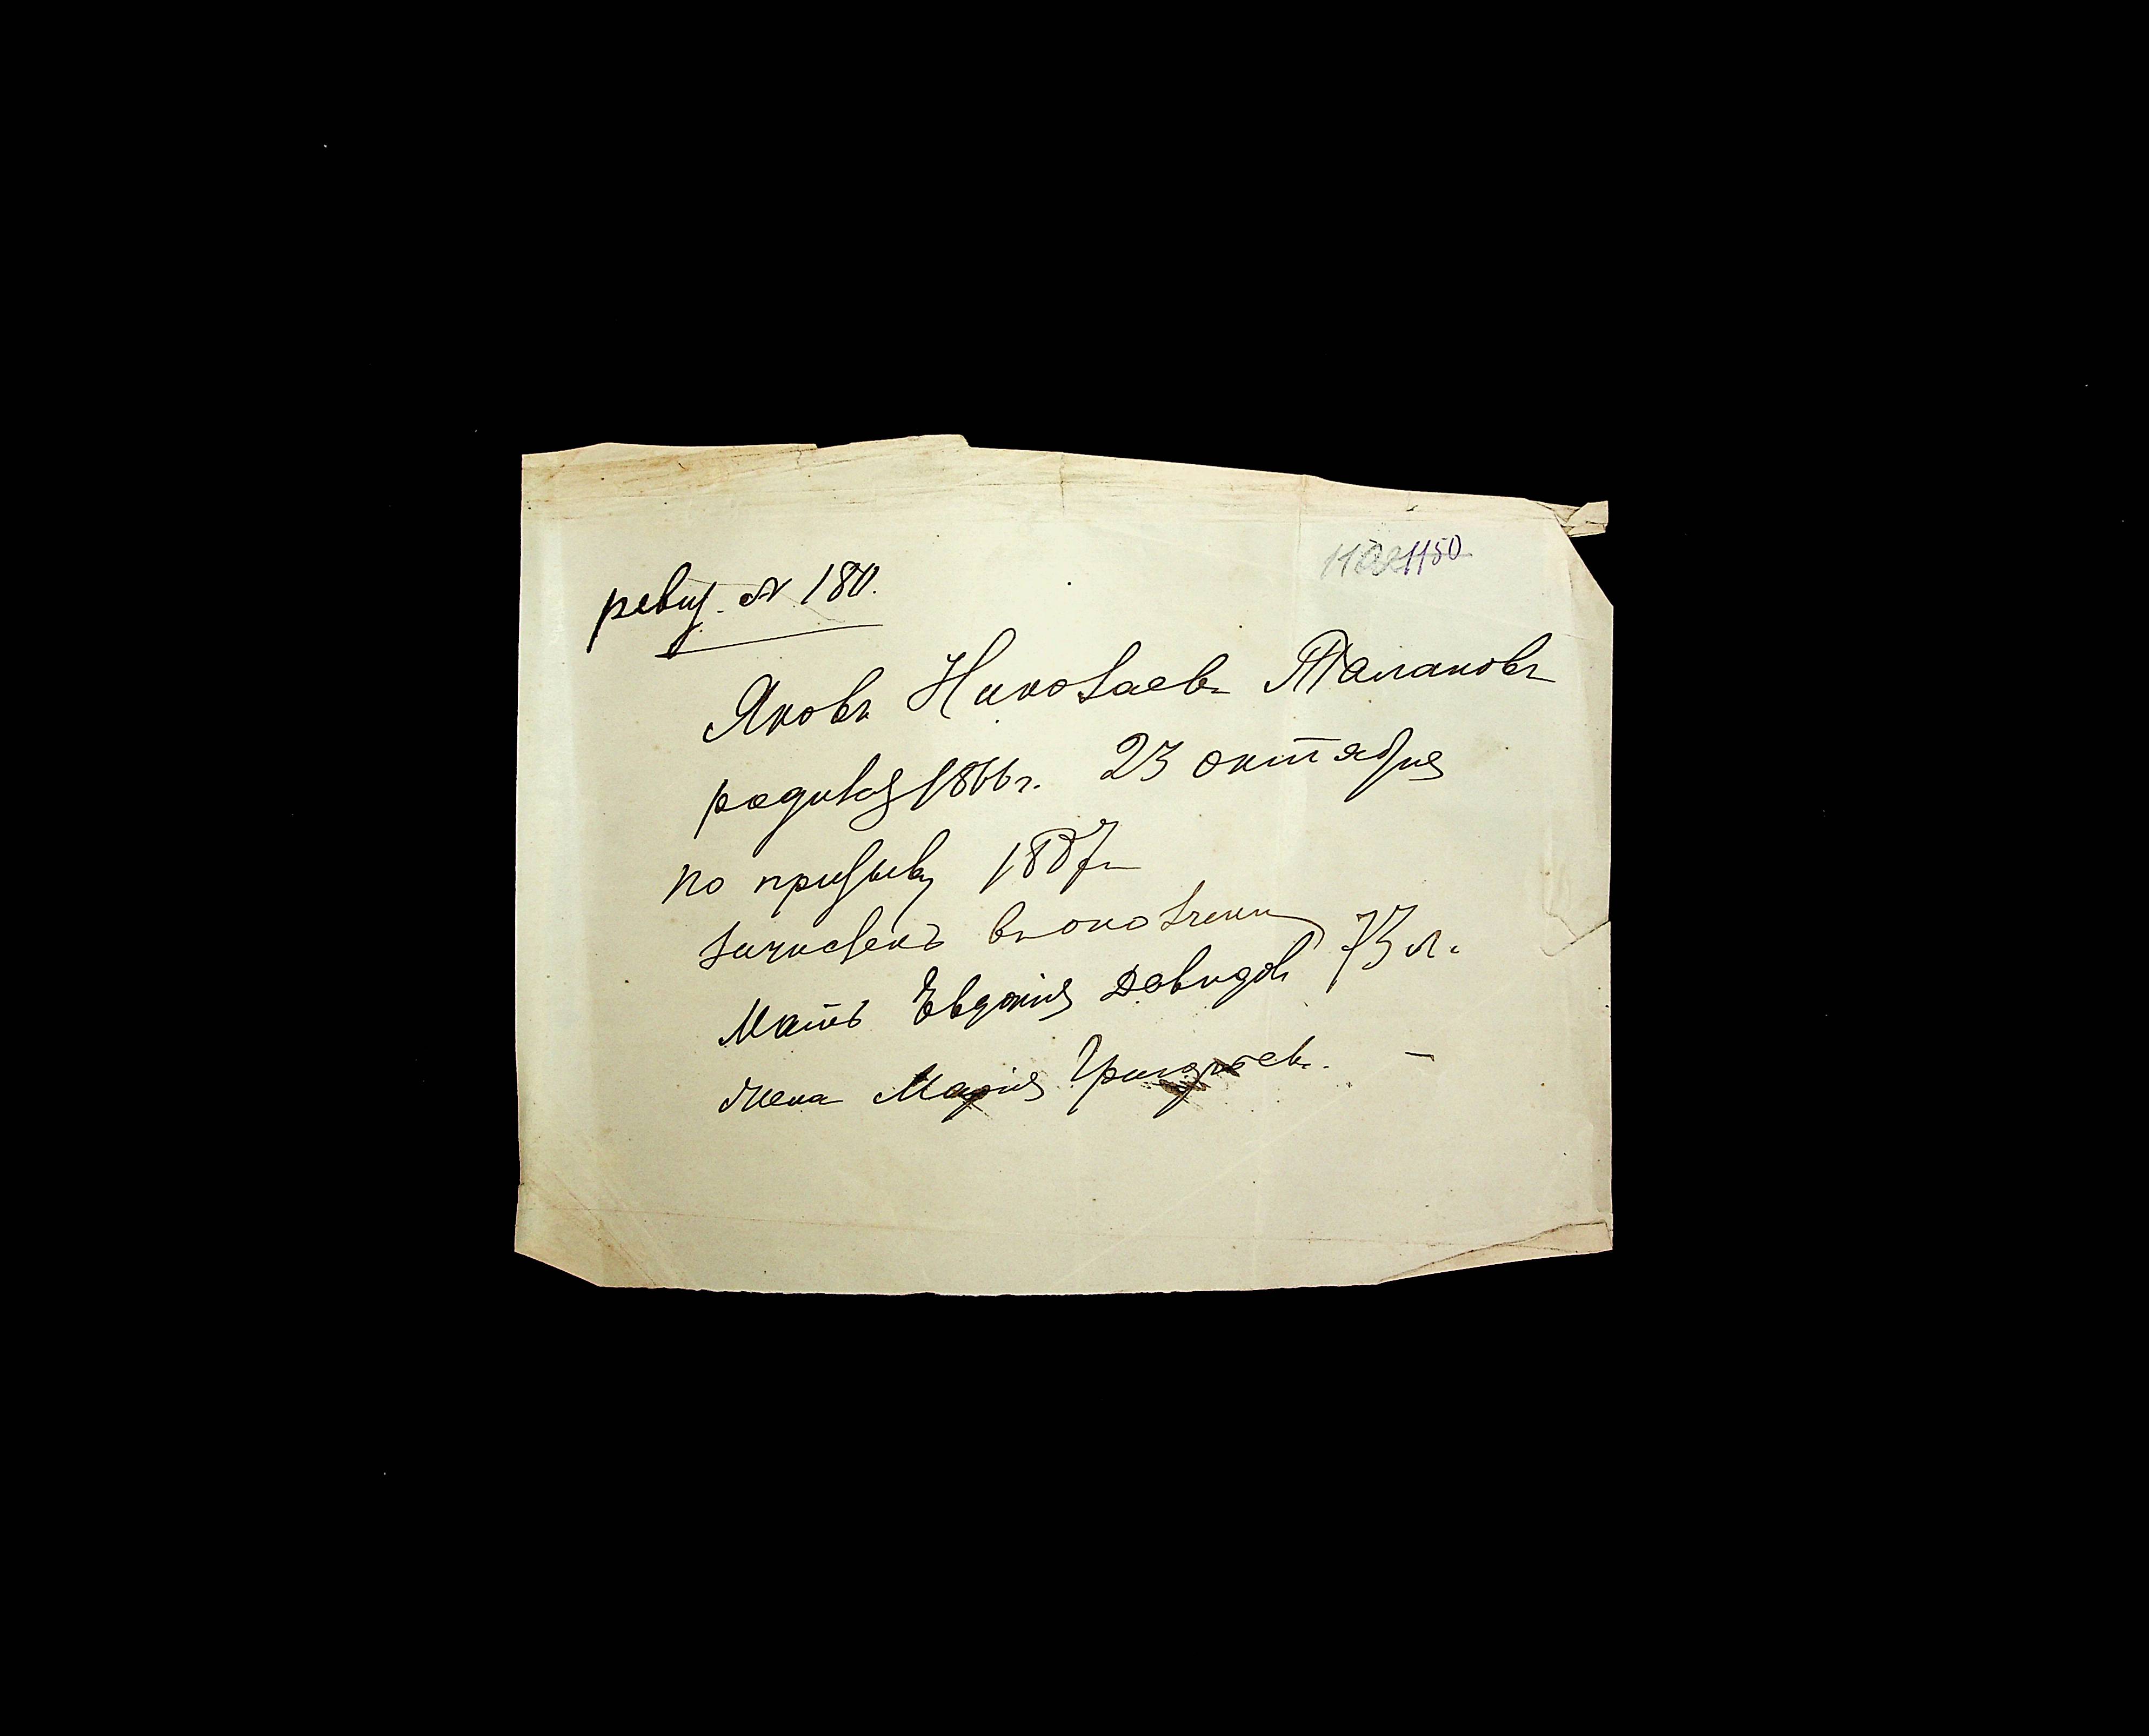 1150
ревиз. № 180.
Яковъ Николаевъ Талановъ
родился 1866 г. 23 октября
по призыву 1887 г.
зачисленъ въ ополчении
Мать Евдокия Давидов 73 л.
жена Мария Григорьев. —